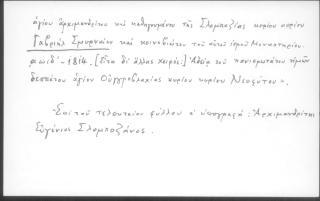 ἁγίου ἀρχιμανδρίτου καὶ καθηγουμένου τῆς Σλομποζίας κυρίου κυρίου
Γαβριὴλ Σμυρναίου καὶ κοινοβιώτου τοῦ αὐτοῦ ἱεροῦ Μοναστηρίου.
αωιδ´ - 1814. [Εἶτα δι' ἄλλης χειρός:] Ἀδείᾳ τοῦ πανιερωτάτου ἡμῶν
δεσπότου ἁγίου Οὑγγροβλαχίας κυρίου κυρίου Νεοφύτου».
Ἐπὶ τοῦ τελευταίου φύλλου ἡ ὑπογραφή: Ἀρχιμανδρίτης
Εὐγένιος Σλομποζάνος.